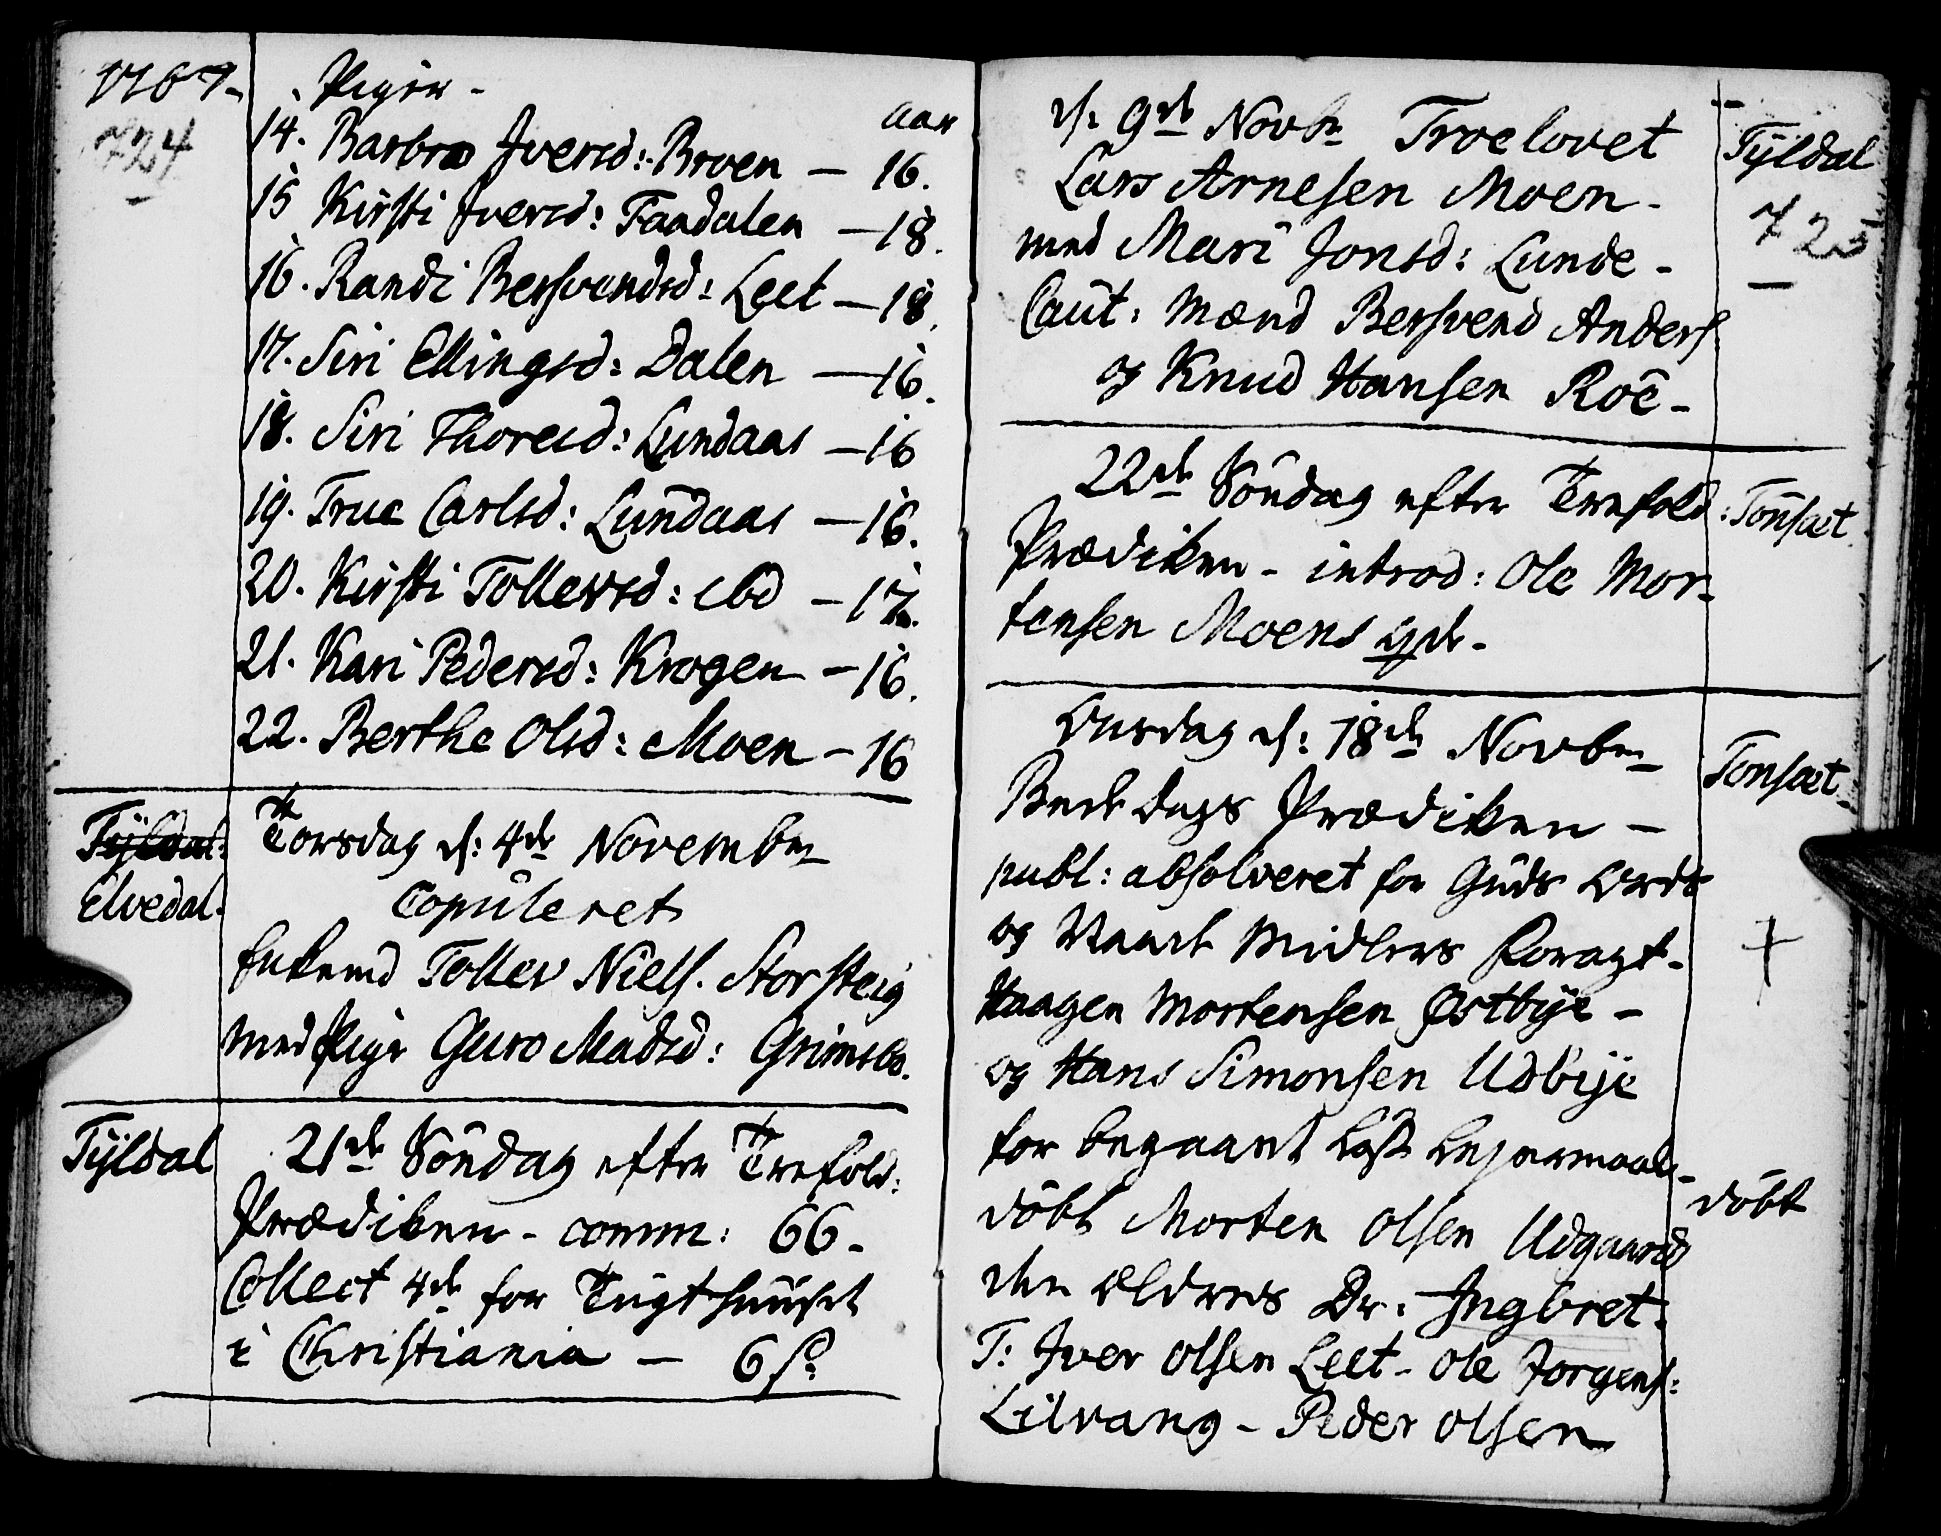 1767-
724
Piger -
aar
14. Barbro Iversd: Broen — 16.
15 Kirsti Iversd: Faadalen — 18.
16. Randi Bersvendsd: Leet — 18.
17. Siri Ellingsd: Dalen — 16.
18. Siri Thoresd: Lundaas — 16
19. True Carlsd: Lundaas — 16.
20. Kirsti Tollevsd: ibd — 17.
21. Kari Pedersd: Krogen — 16.
22. Berthe Olsd: Moen — 16
Tÿldal:
Elvedal.
Torsdag d: 4de November
Copuleret
Enkemd Tollev Niels. Storsteig
med Pige Guro Madsd: Grimsbo.
Tÿldal
21de Søndag efter Trefold:
Prædiken - comm: 66.
Collect 4de for Tugthuuset
i Christiania — 6 s.
d: 9de Novbr Troelovet
Tÿldal
725
Lars Arnesen Moen -
med Mari Jonsd: Lunde -
Caut: Mænd Bersvend Anders.
og Knud Hansen Roe -
22de Søndag efter Trefold:
Tønsæt.
Prædiken - introd: Ole Mor-
tensen Moens qde.
Onsdag d: 18de Novbr
Tonsæt.
Bededags Prædiken —
publ: absolveret for Guds Ords
og Naade Midlers Foragt -
Haagen Mortensen Østbÿe -
og Hans Simonsen Udbÿe
for begaaet Løst Lejermaal -
døbt Morten Olsen Udgaard
døbt
den Eldres Dr. Ingbret.
T: Iver Olsen Leet - Ole Jorgens:
Lilvang - Peder Olsen